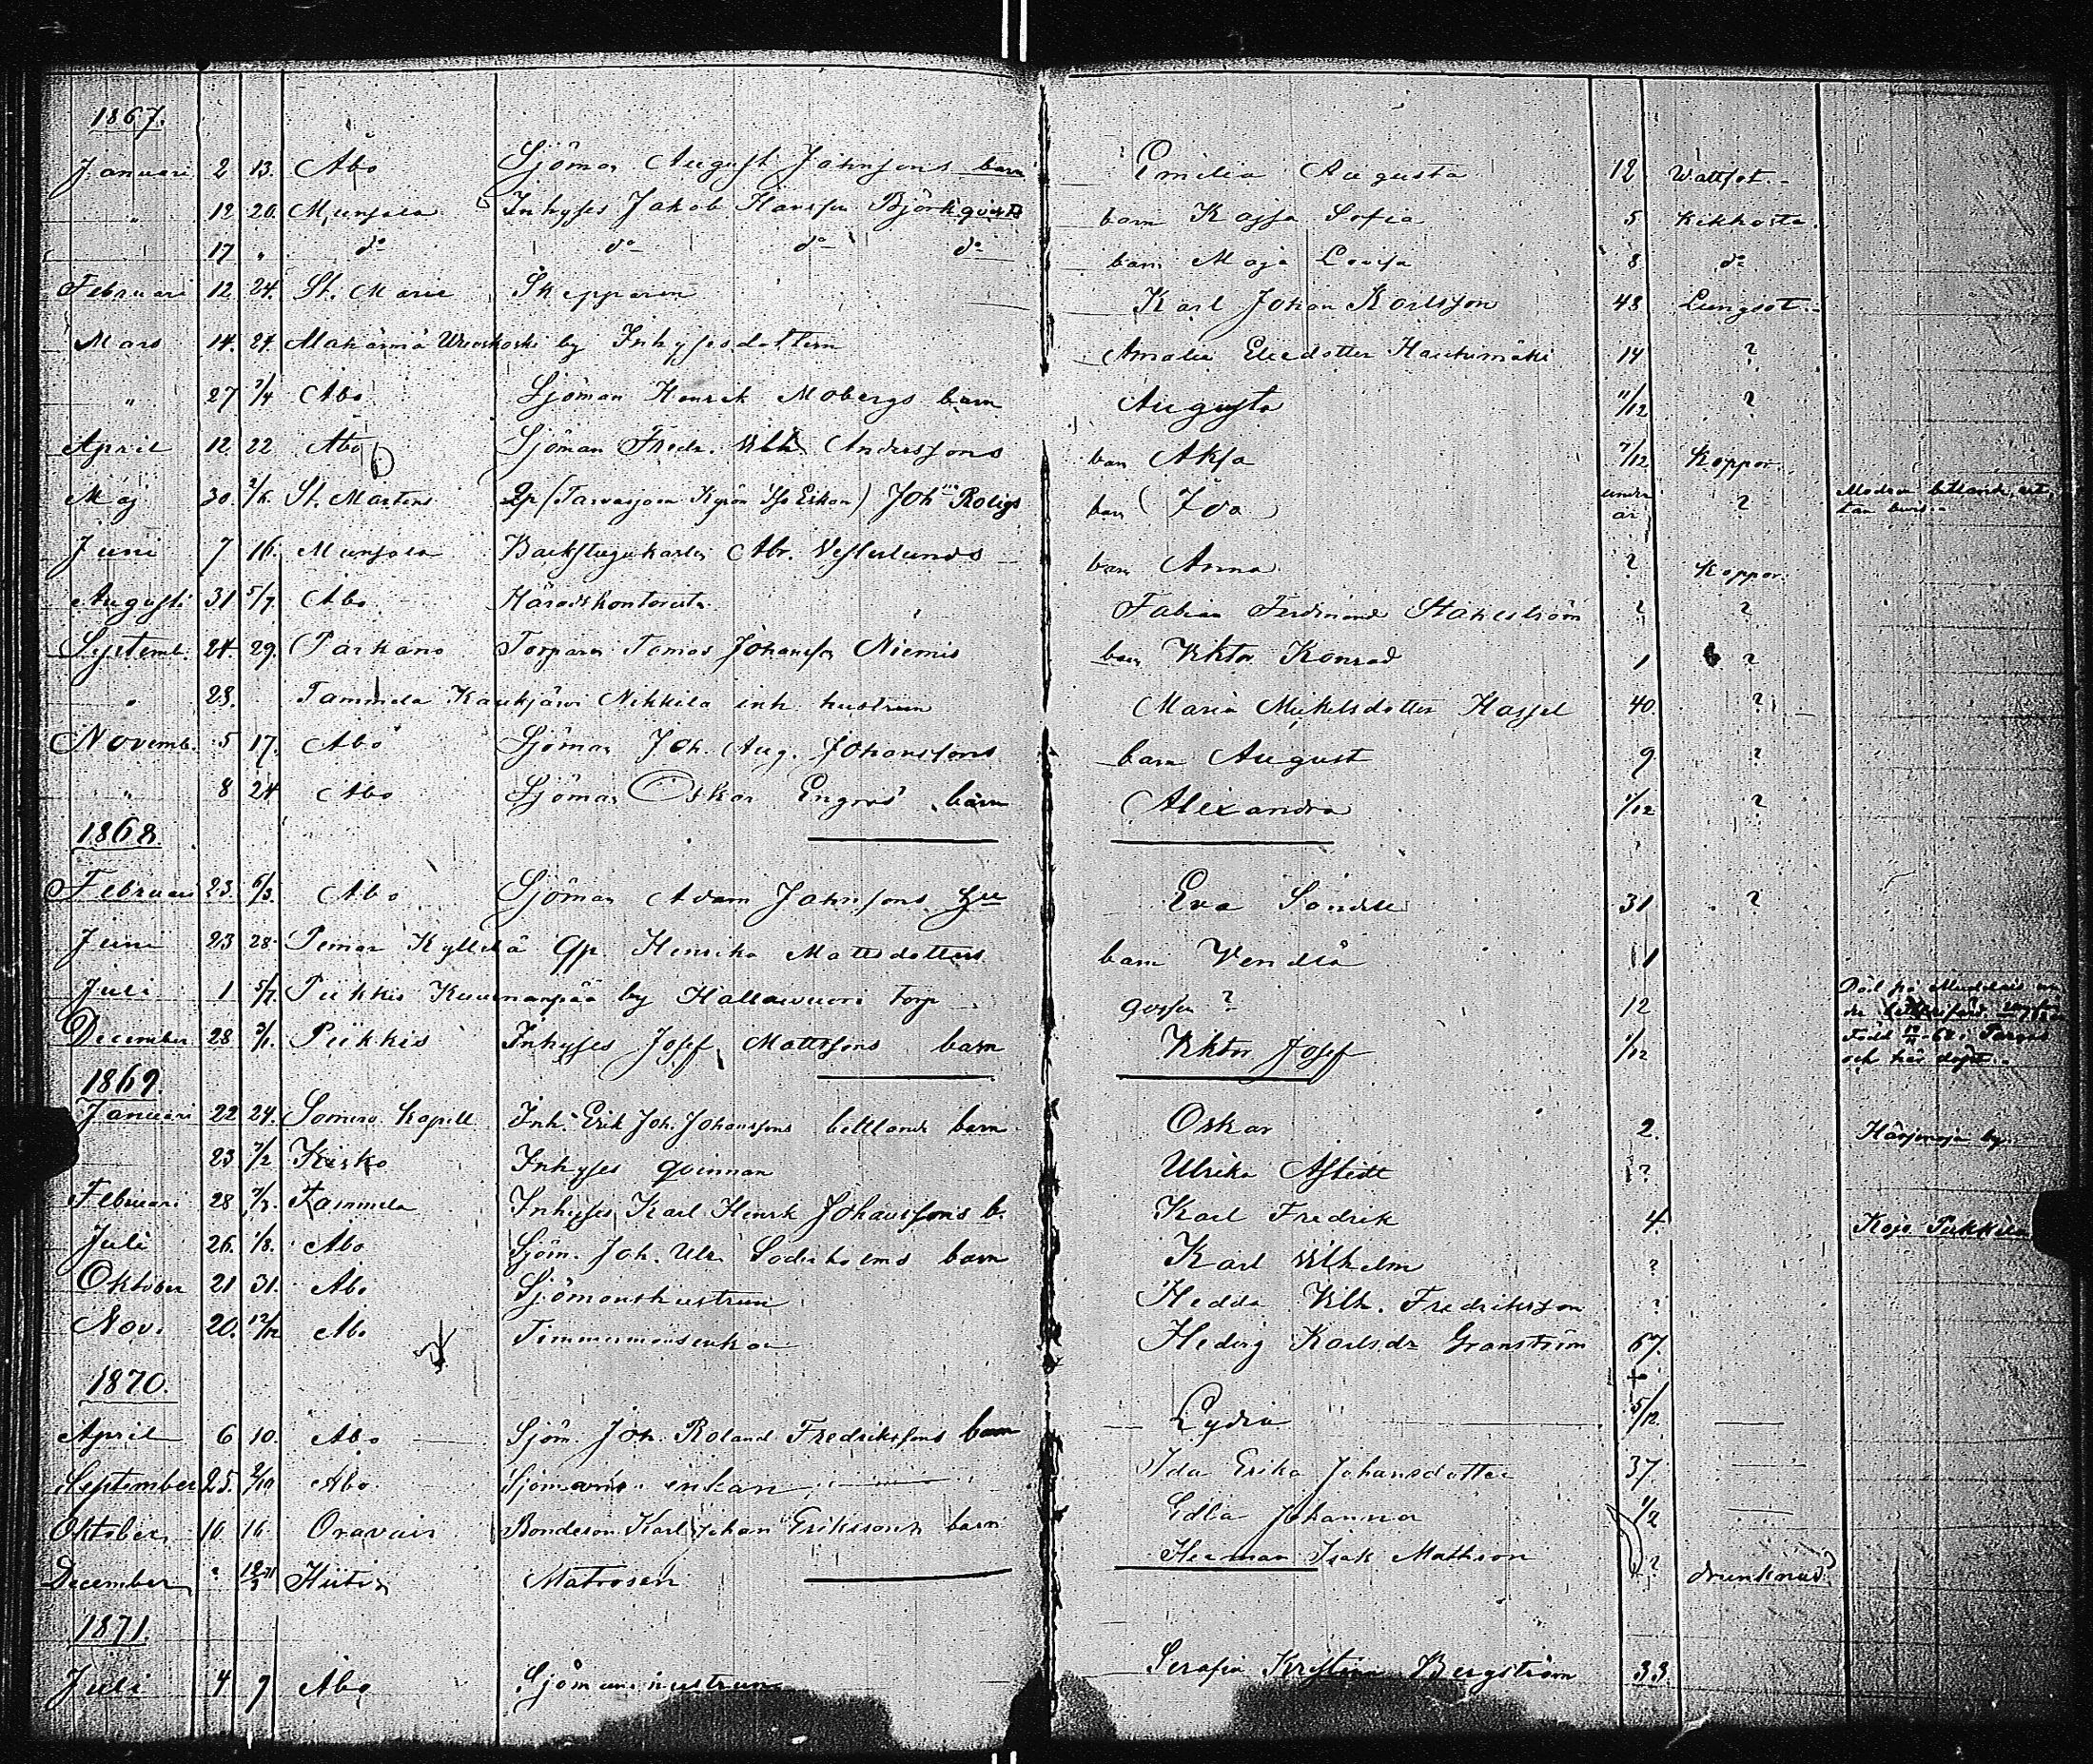 1867.
Januari 2 13. Åbo Sjöman August Johnsons barn Emilia Augusta 12 Wattsot.
" 12 20. Munsala Inhyses Jakob Hansson Björkqvists barn Kajsa Sofia 5 Kikhosta.
17 " do do do do barn Maja Lovisa 8 do
Februari 12 24. St. Marie Skepparen Karl Johan Karlsson 48 Lungsot.
Mars 14. 24. by Inhysesdottern Amalia Hautamäki 14 ?
" 27 7/4 Åbo Sjöman Henrik Mobergs barn Augusta 11/12 ?
April 12 22 Åbo Sjöman Fredr. Vilh. Anderssons barn Aksa 7/12 Koppor.
Maj 30. 2/6 St. Martens Qp (Tarvasjoen Kyrön) Joh. Roligs barn Ida under år ?
Juni 7 16. Munsala Backstugukarlen Abr. Vesterlunds barn Anna ? Koppor.
Augusti 31 5/9. Åbo Häradskontorist Fabian Ferdinand Ståhlström ? ?
Septemb. 24. 29. Parkano Torparen Tomas Johansson Niemis barn Viktor Konrad 1 ?
" 28. Tammela Kaukjärvi Nikkilä inh. hustrun Maria Mickelsdotter Hassel 40 ?
Novemb. 5 17. Åbo Sjöman Joh. Aug. Johanssons barn August 9 ?
" 8 24 Åbo Sjöman Oskar Engros barn Alexandra 1/12 ?
1868.
Februari 23. 6/3. Åbo Sjöman Adam Johnsons Eva 31 ?
Juni 23 28. Pemar Qp. Henrika Mattsdotters barn Vendla 11
Juli 1 5/7. Piikkis by torp gossen ? 12
December 28. 3/1. Piikkis Inhyses Josef Mattssons barn Viktor Josef 1/12 Född i Pargas
och här döpt.
1869.
Januari 22 24. Somero Kapell Inh. Erik Joh. Johanssons barn Oskar 2. by
23 7/2 Kisko Inhyses qvinnan Ulrika ?
Februari 28 7/3. Tammela Inhyses Karl Henrik Johanssons b. Karl Fredrik 4.
Juli 26. 1/8. Åbo Sjöm. Joh. Ulr. Söderholms barn Karl Vilhelm ?
Oktober 21 31. Åbo Sjömanshustrun Hedda Vilh. Fredriksson ?
Nov. 20. 12/12 Åbo Timmermansenkan Hedvig Karlsdr Granström 67.
1870.
April 6 10. Åbo Sjöm. Joh. Roland Fredrikssons barn Lydia 5/12.
September 25. 2/10 Åbo Sjömans enkan Ida Erika Johansdotter 37
Oktober 10. 16 Oravais Bondeson Karl Johan Erikssons barn Edla Johanna 1/2
December ? Hiitis Matrosen Herman Isak Mattsson ? drunknad.
1871.
Juli 4 9 Åbo Sjömanshustrun Serafia Kristina Bergström 33.